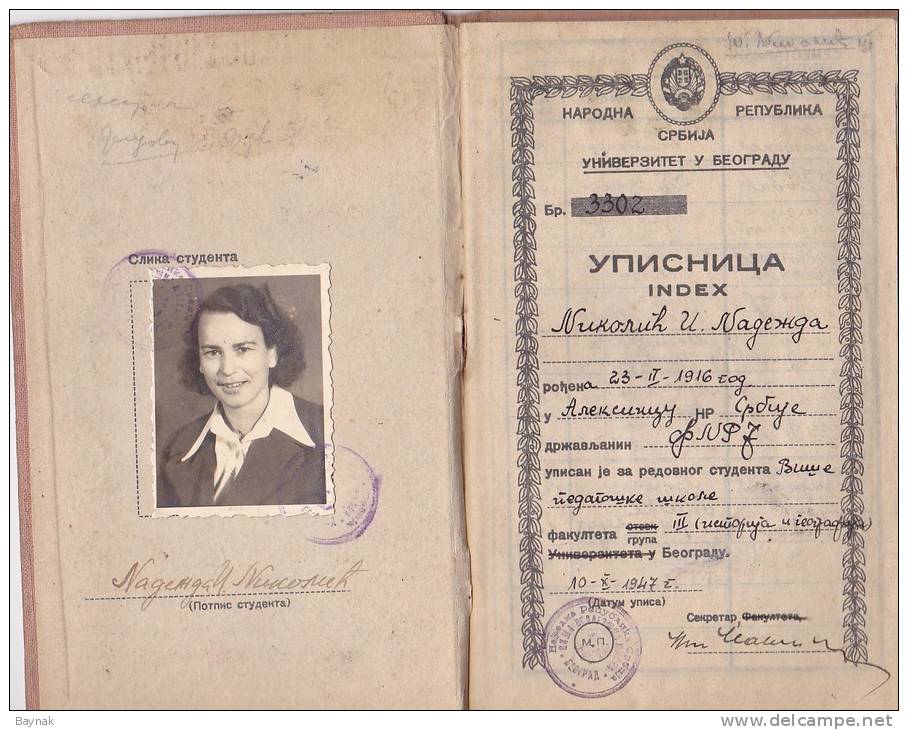 Слика студента
Надежда И. Николић
(Потпис студента)
НАРОДНА РЕПУБЛИКА
СРБИЈА
УНИВЕРЗИТЕТ У БЕОГРАДУ
Бр. 3302
УПИСНИЦА
INDEX
Николић И. Надежда
рођена 23-II-1916 год
у Алексинцу НР Србије
држављанин ФНРЈ
уписан је за редовног студента Више
педагошке школе
факултета отсек група III (историја и географија)
Универзитета у Београду.
10-X-1947 г.
(Датум уписа)
Секретар Факултета,
Народна Република Србија
ВИША ПЕДАГОШКА
БЕОГРАД
М.П.
Baynak
www.delcampe.net